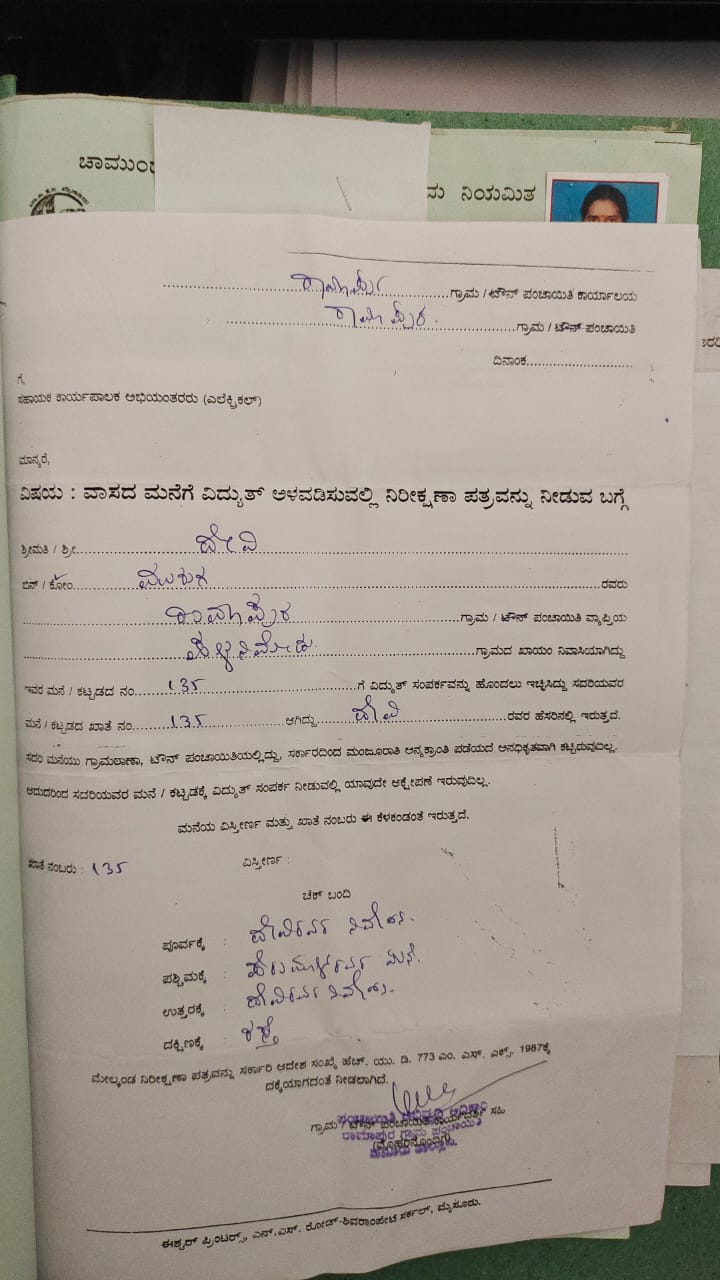 ಚಾಮುಂ
ನಿಯಮಿತ
ರಾಮಾಪುರ ಗ್ರಾಮ / ಟೌನ್ ಪಂಚಾಯಿತಿ ಕಾರ್ಯಾಲಯ
ರಾಮಾಪುರ. ಗ್ರಾಮ / ಟೌನ್ ಪಂಚಾಯಿತಿ
ದಿನಾಂಕ
ಗೆ,
ಸಹಾಯಕ ಕಾರ್ಯಪಾಲಕ ಅಭಿಯಂತರರು (ಎಲೆಕ್ಟ್ರಿಕಲ್)
ಮಾನ್ಯರೆ,
ವಿಷಯ : ವಾಸದ ಮನೆಗೆ ವಿದ್ಯುತ್ ಅಳವಡಿಸುವಲ್ಲಿ ನಿರೀಕ್ಷಣಾ ಪತ್ರವನ್ನು ನೀಡುವ ಬಗ್ಗೆ
ಶ್ರೀಮತಿ / ಶ್ರೀ ದೇವಿ
ಬಿನ್ / ಕೋಂ ಮುರುಗ ರವರು
ರಾಮಾಪುರ ಗ್ರಾಮ / ಟೌನ್ ಪಂಚಾಯಿತಿ ವ್ಯಾಪ್ತಿಯ
ಗ್ರಾಮದ ಖಾಯಂ ನಿವಾಸಿಯಾಗಿದ್ದು
ಇವರ ಮನೆ / ಕಟ್ಟಡದ ನಂ. 135 ಗೆ ವಿದ್ಯುತ್ ಸಂಪರ್ಕವನ್ನು ಹೊಂದಲು ಇಚ್ಛಿಸಿದ್ದು ಸದರಿಯವರ
ಮನೆ / ಕಟ್ಟಡದ ಖಾತೆ ನಂ. 135 ಆಗಿದ್ದು ದೇವಿ ರವರ ಹೆಸರಿನಲ್ಲಿ ಇರುತ್ತದೆ.
ಸದರಿ ಮನೆಯು ಗ್ರಾಮಠಾಣಾ, ಟೌನ್ ಪಂಚಾಯಿತಿಯಲ್ಲಿದ್ದು, ಸರ್ಕಾರದಿಂದ ಮಂಜೂರಾತಿ ಅನ್ಯಕ್ರಾಂತಿ ಪಡೆಯದೆ ಅನಧಿಕೃತವಾಗಿ ಕಟ್ಟಿರುವುದಿಲ್ಲ.
ಆದುದರಿಂದ ಸದರಿಯವರ ಮನೆ / ಕಟ್ಟಡಕ್ಕೆ ವಿದ್ಯುತ್ ಸಂಪರ್ಕ ನೀಡುವಲ್ಲಿ ಯಾವುದೇ ಆಕ್ಷೇಪಣೆ ಇರುವುದಿಲ್ಲ.
ಮನೆಯ ವಿಸ್ತೀರ್ಣ ಮತ್ತು ಖಾತೆ ನಂಬರು ಈ ಕೆಳಕಂಡಂತೆ ಇರುತ್ತದೆ.
ಖಾತೆ ನಂಬರು : 135 ವಿಸ್ತೀರ್ಣ :
ಚೆಕ್ ಬಂದಿ
ಪೂರ್ವಕ್ಕೆ : ದೇವಿರವರ ನಿವೇಶನ.
ಪಶ್ಚಿಮಕ್ಕೆ : ಪೆರುಮಾಳ್‌ರವರ ಮನೆ.
ಉತ್ತರಕ್ಕೆ : ದೇವಿರವರ ನಿವೇಶನ.
ದಕ್ಷಿಣಕ್ಕೆ : ರಸ್ತೆ
ಮೇಲ್ಕಂಡ ನಿರೀಕ್ಷಣಾ ಪತ್ರವನ್ನು ಸರ್ಕಾರಿ ಆದೇಶ ಸಂಖ್ಯೆ ಹೆಚ್. ಯು. ಡಿ. 773 ಎಂ. ಎಸ್. ಎಕ್ಸ್. 1987ಕ್ಕೆ
ದಕ್ಕೆಯಾಗದಂತೆ ನೀಡಲಾಗಿದೆ.
ಪಂಚಾಯಿತಿ ಅಭಿವೃದ್ಧಿ ಅಧಿಕಾರಿ
ಗ್ರಾಮ / ಟೌನ್ ಪಂಚಾಯಿತಿ ಕಾರ್ಯದರ್ಶಿ ಸಹಿ
ರಾಮಾಪುರ ಗ್ರಾಮ ಪಂಚಾಯಿತಿ
(ಮೊಹರಿನೊಂದಿಗೆ)
ಈಶ್ವರ್ ಪ್ರಿಂಟರ್ಸ್, ಎನ್.ಎಸ್. ರೋಡ್-ಶಿವರಾಂಪೇಟೆ ಸರ್ಕಲ್, ಮೈಸೂರು.